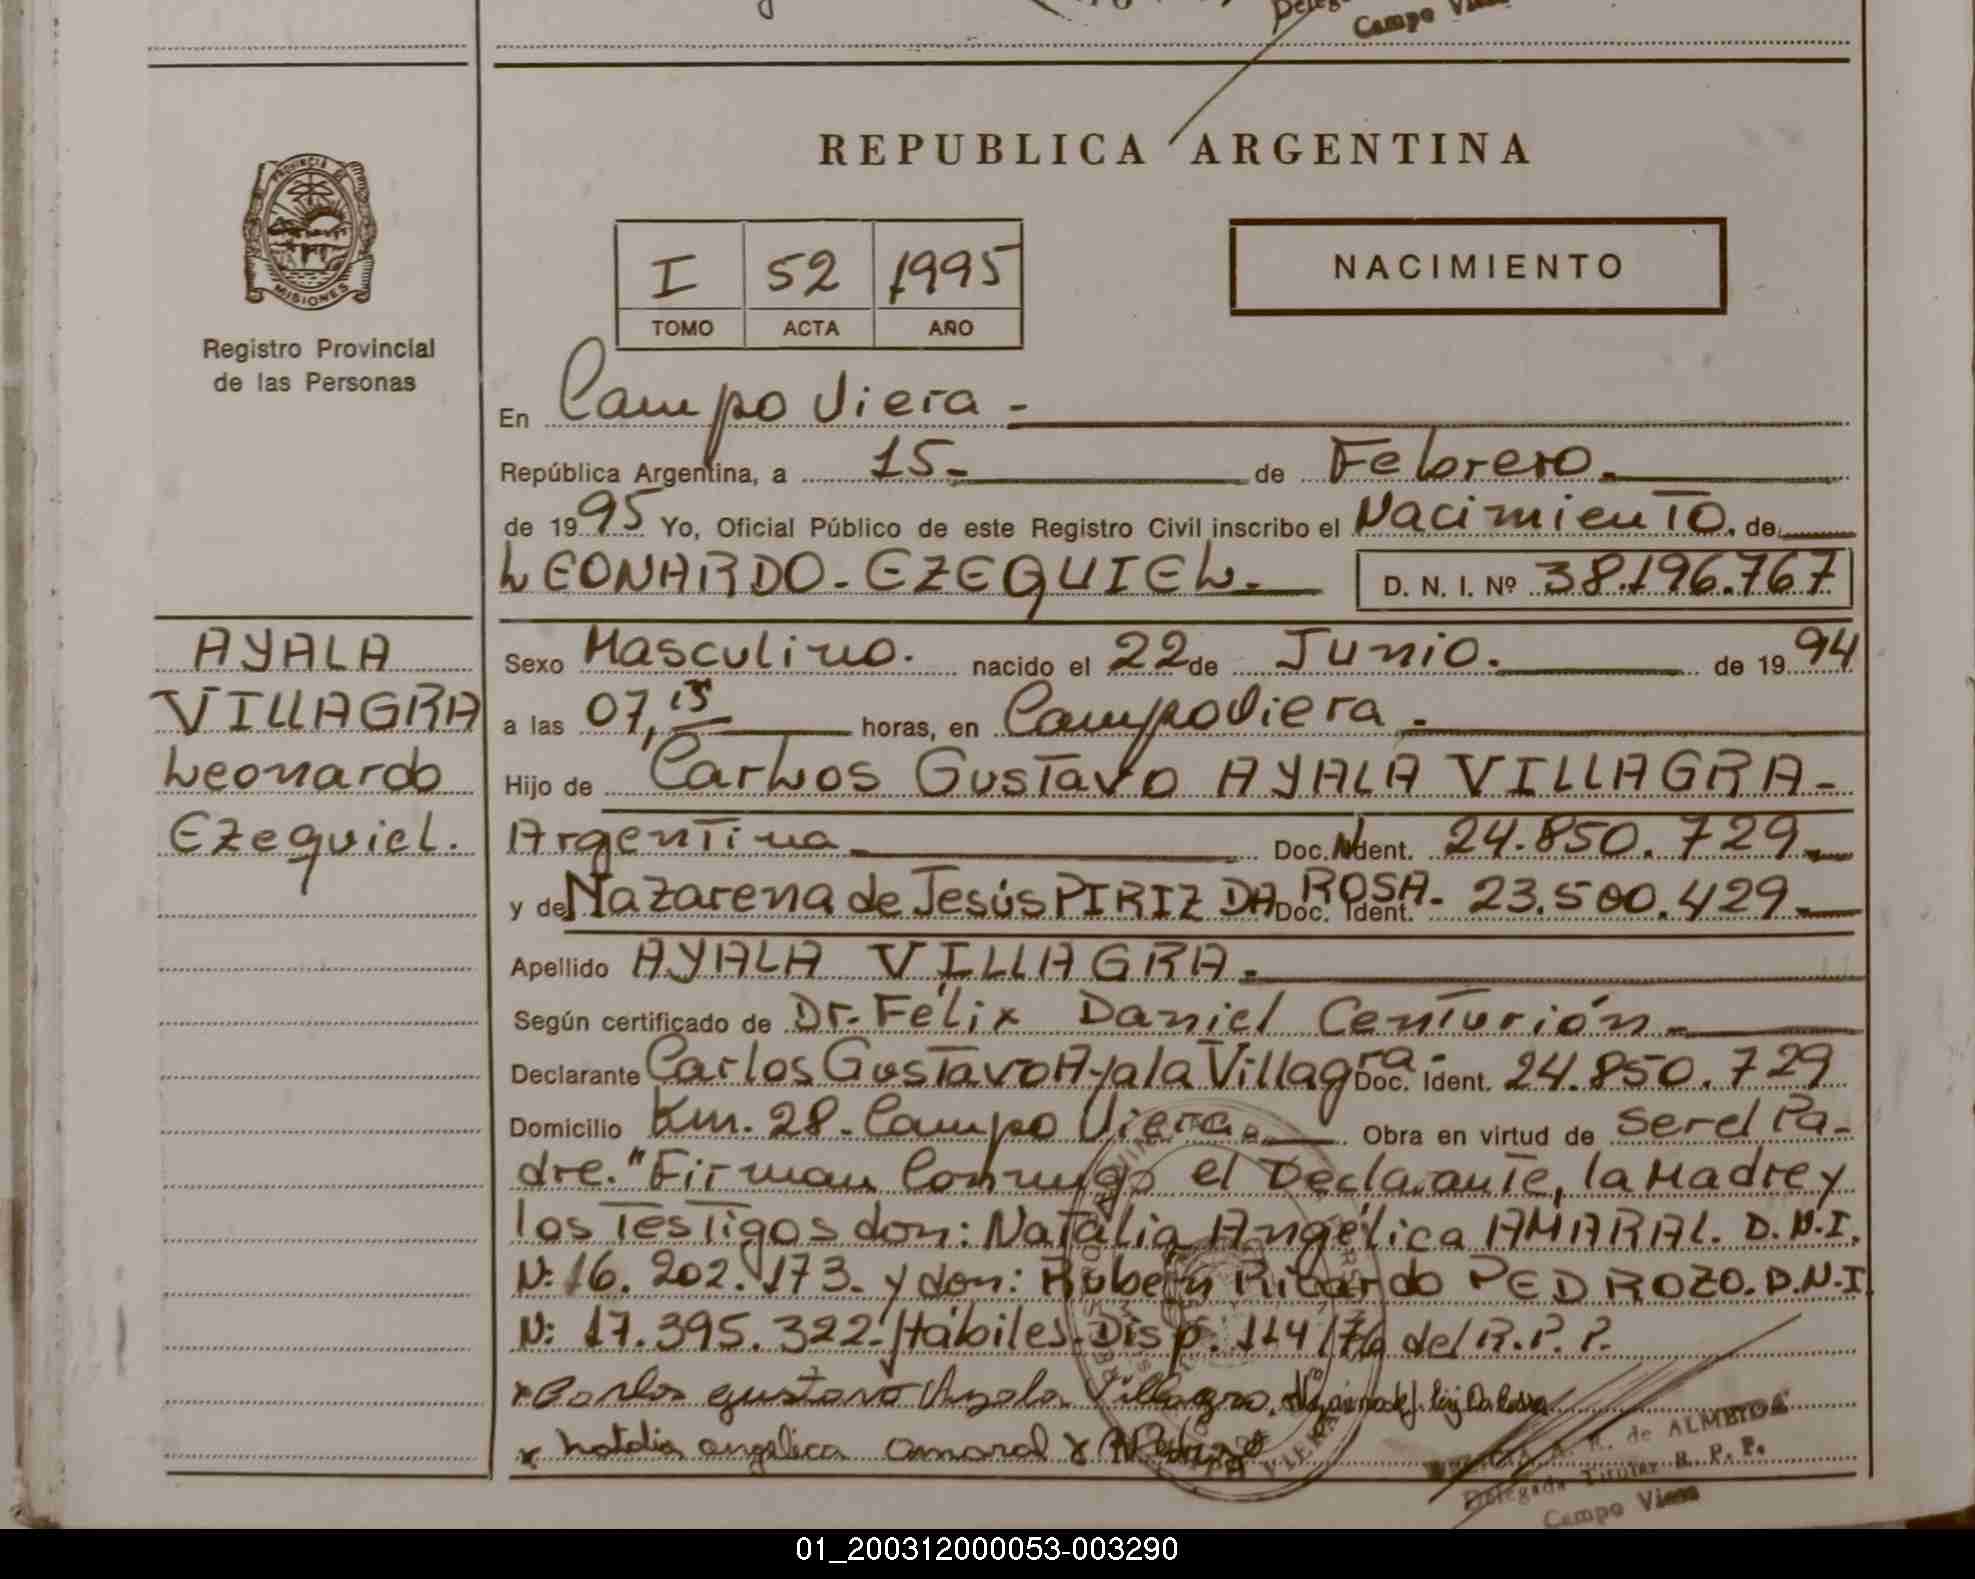 Campo Viera
REPUBLICA ARGENTINA
PROVINCIA DE
MISIONES
Registro Provincial
de las Personas
I 52 1995
TOMO ACTA AÑO
NACIMIENTO
En Campo Viera -
República Argentina, a 15- de Febrero.
de 1995 Yo, Oficial Público de este Registro Civil inscribo el Nacimiento. de
LEONARDO-EZEQUIEL. D. N. I. Nº 38.196.767
AYALA
VILLAGRA
Leonardo
Ezequiel.
Sexo Masculino. nacido el 22 de Junio. de 1994
a las 07,15 horas, en Campo Viera.
Hijo de Carlos Gustavo AYALA VILLAGRA-
Argentina Doc. Ident. 24.850.729-
y de Nazarena de Jesús PIRIZ DA ROSA- Doc. Ident. 23.500.429-
Apellido AYALA VILLAGRA.
Según certificado de Dr. Félix Daniel Centurión-
Declarante Carlos Gustavo Ayala Villagra- Doc. Ident. 24.850.729
Domicilio Km. 28- Campo Viera. Obra en virtud de ser el Pa-
dre." Firman Conmigo el Declarante, la Madre y
los Testigos don: Natalia Angélica AMARAL. D.N.I.
N: 16.202.173. y don: Rubén Ricardo PEDROZO. D.N.I
N: 17.395.322. Hábiles. Disp. 114/76 del R.P.P.
x Carlos gustavo Ayala Villagra.
x Natalia angelica amaral x
A. R. de ALMEIDA
Delegada Titular R. P. P.
Campo Viera
01_200312000053-003290